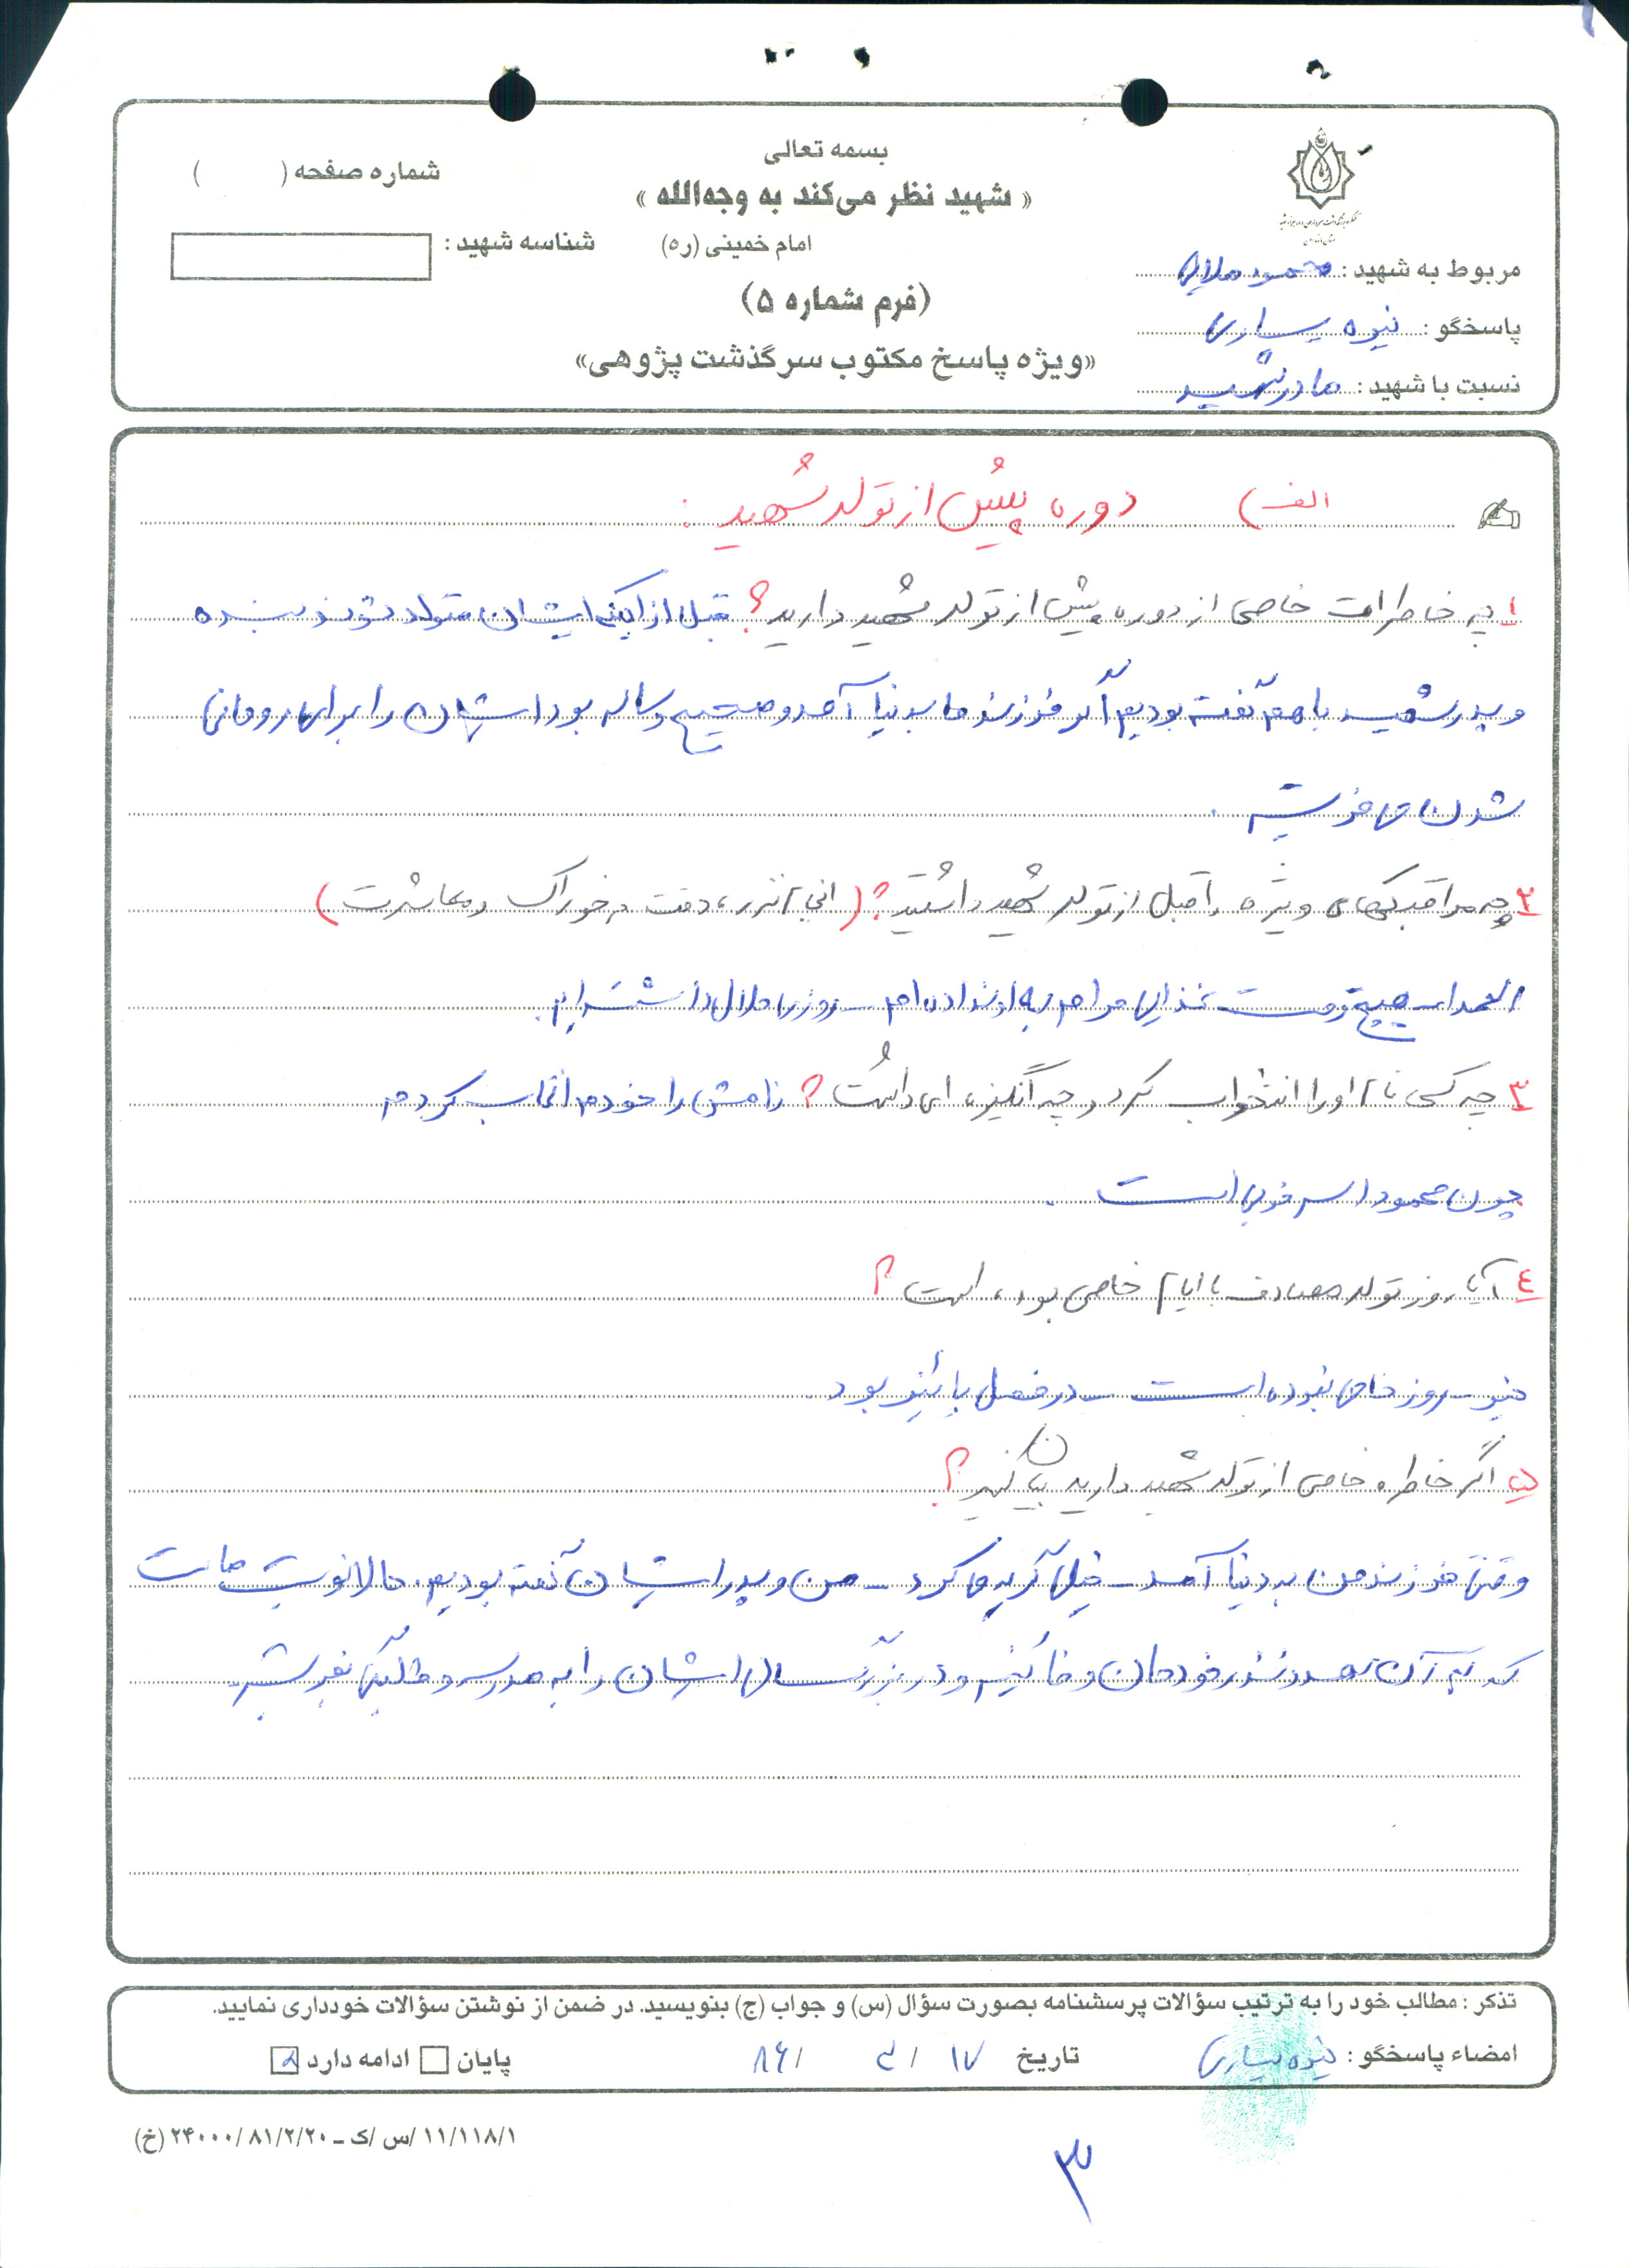 بسمه تعالی
« شهید نظر می‌کند به وجه‌الله »
امام خمینی (ره)
(فرم شماره ۵)
«ویژه پاسخ مکتوب سرگذشت پژوهی»
شماره صفحه ( )
شناسه شهید :
مربوط به شهید : محمود ملایی
پاسخگو : نیره یساری
نسبت با شهید : مادر شهید
الف) دوره پیش از تولد شهید :
۱ چه خاطرات خاصی از دوره پیش از تولد شهید دارید؟ قبل از اینکه ایشان متولد شوند بنده
و پدر شهید با هم گفته بودیم اگر فرزند ما بدنیا آمد و صحیح و سالم بود ایشان را برای روحانی
شدن می فرستیم .
۲ چه مراقبتهای ویژه را قبل از تولد شهید داشتید؟ (انجام نذر، دقت در خوراک و معاشرت)
الحمدلله هیچ وقت غذای حرام به او نداده ام روزی حلال داشته ایم.
۳ چه کسی نام او را انتخواب کرد و چه انگیزه ای داشت؟ نامش را خودم انتخاب کردم
چون محمود اسم خوبی است .
٤ آیا روز تولد مصادف با ایام خاصی بوده است ؟
خیر روز خاصی نبوده است در فصل پائیز بود
۵ اگر خاطره خاصی از تولد شهید دارید بیان کنید؟
وقتی فرزند من به دنیا آمد خیلی گریه می کرد من و پدر ایشان گفته بودیم. حالا نوبت ماست
که به آن عهد و نذر خودمان وفا کنیم و در بزرگسالی ایشان را به مدرسه و طلبگی بفرستیم
تذکر : مطالب خود را به ترتیب سؤالات پرسشنامه بصورت سؤال (س) و جواب (ج) بنویسید. در ضمن از نوشتن سؤالات خودداری نمایید.
امضاء پاسخگو : نیره یساری تاریخ ۱۷ / ۲ / ۸۶ پایان ادامه دارد
۱۱/۱۱۸/۱ /س /ک – ۸۱/۲/۲۰ /۲۴۰۰۰ (خ)
۳